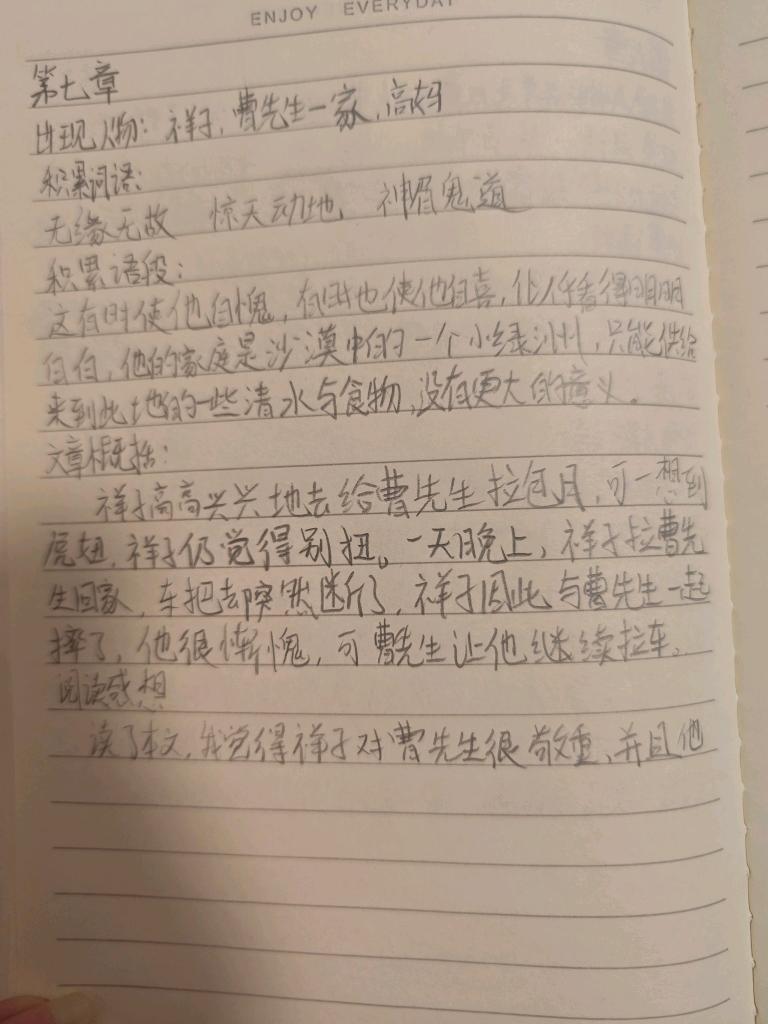 ENJOY EVERYDAY
第七章
出现人物：祥子，曹先生一家，高妈
积累词语：
无缘无故 惊天动地 神眉鬼道
积累语段：
这有时使他自愧，有时也使他自喜，似乎看得明明
白白，他的家庭是沙漠中的一个小绿洲，只能供给
来到此地的一些清水与食物，没有更大的意义。
文章概括：
祥子高高兴兴地去给曹先生拉包月，可一想到
虎妞，祥子仍觉得别扭。一天晚上，祥子拉曹先
生回家，车把却突然断了，祥子因此与曹先生一起
摔了，他很惭愧，可曹先生让他继续拉车。
阅读感想
读了本文，我觉得祥子对曹先生很敬重，并且他